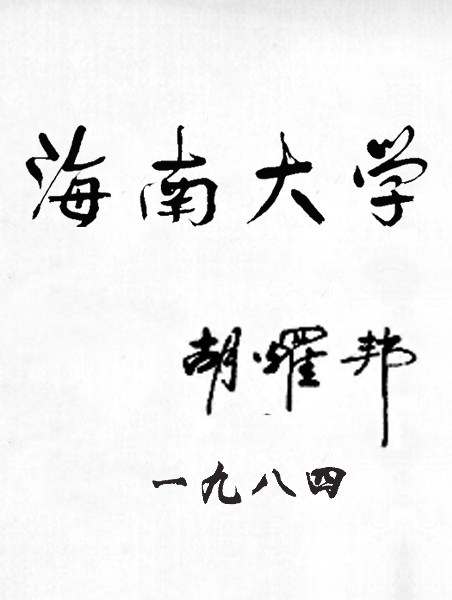 海南大学
胡耀邦
一九八四